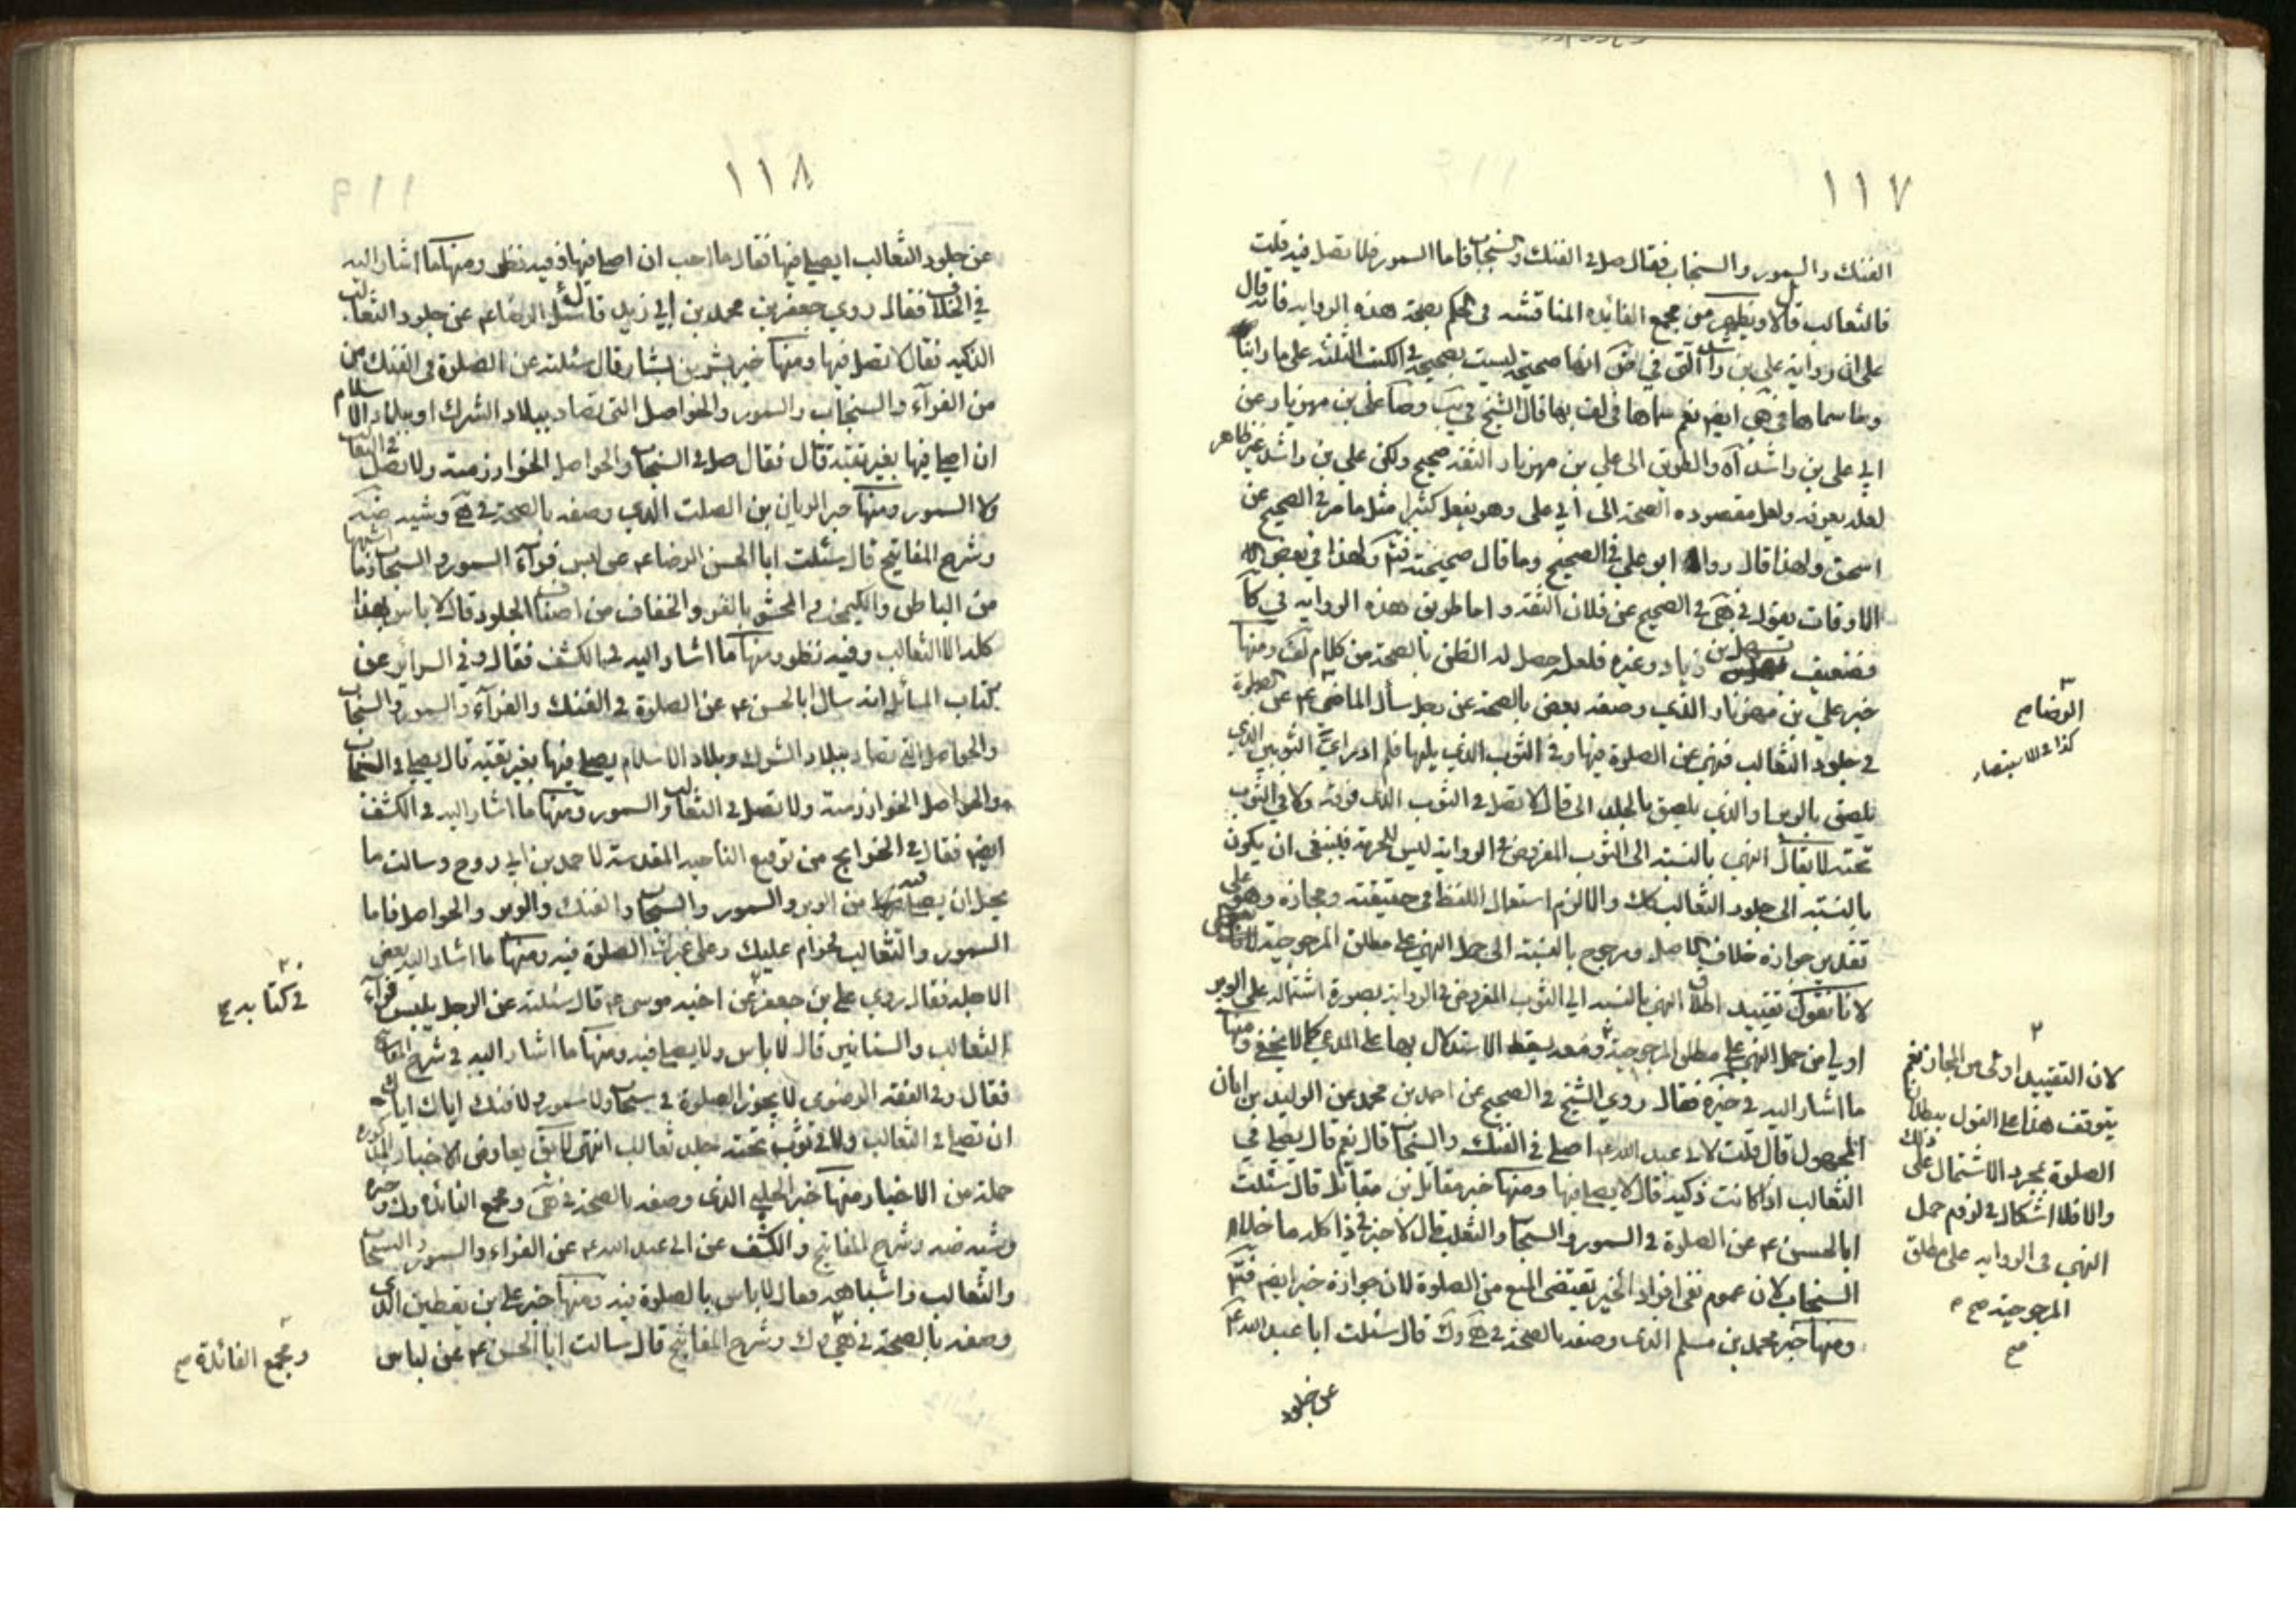 ١١٧
الفنك والسمور والسنجاب فقال صل في الفنك والسنجاب فاما السمور فلا تصل فيه قلت
فالثعالب قال لا ويظهر من مجمع الفائدة المناقشة في الحكم بصحة هذه الرواية فانه قال
على ان رواية علي بن راشد التي في انها صحيحة ليست بصحيحة في الكتب الثلثة على ما رايتها
وما سماها في هى ايضم نعم سماها في لف بها قال الشيخ في يب وصا علي بن مهزيار عن
ابي علي بن راشد آه والطريق الى علي بن مهزيار الثقة صحيح ولكن علي بن راشد غير ظاهر
لعله يعرفه ولعل مقصوده الصحة الى ابي علي وهو يفعل كثيرا مثل ما مر في الصحيح عن
اسحق ولهذا قال رواه ابو علي في الصحيح وما قال صحيحة فتم وكهذا في بعض
الاوقات يقول في هى في الصحيح عن فلان الثقة واما طريق هذه الرواية في كا
فضعيف بسهل بن زياد وغيره فلعل حصل له الظن بالصحة من كلام لف ومنها
خبر علي بن مهزيار الذي وصفه بعض بالصحة عن رجل سأل الماضي ع عن الصلوة
في جلود الثعالب فنهى عن الصلوة فيها وفي الثوب الذي يليها فلم ادر اي الثوبين الذي
يلصق بالوبر او الذي يلصق بالجلد الى قال لا تصل في الثوب الذي فوقه ولا في الثوب
تحته لا يقال النهي بالنسبة الى الثوب المفروض في الرواية ليس للحرمة فينبغي ان يكون
بالنسبة الى جلود الثعالب كك والا لزم استعمال اللفظ في حقيقته ومجازه وهو على
تقدير جوازه خلاف الاصل ومرجوح بالنسبة الى حمل النهي على مطلق المرجوحية
لانا نقول تقييد اطلاق النهي بالنسبة الى الثوب المفروض في الرواية بصورة اشتماله على الوبر
اولى من حمل النهي على مطلق المرجوحية ومعه يسقط الاستدلال بها على المدعي كما لا يخفى ومنها
ما اشار اليه في خيره فقال روى الشيخ في الصحيح عن احمد بن محمد عن الوليد بن ابان
المجهول قال قلت لابي عبد الله ع اصلي في الفنك والسنجاب قال نعم قال يصلي في
الثعالب اذا كانت ذكية قال لا يصلي فيها ومنها خبر مقاتل بن مقاتل قال سئلت
ابا الحسن ع عن الصلوة في السمور والسنجاب والثعلب قال لا خير في ذا كله ما خلا
السنجاب لان عموم نفي افراد الخير يقتضي المنع من الصلوة لان جوازه خير ايضم فتم
ومنها خبر محمد بن مسلم الذي وصفه بالصحة في هى وك قال سئلت ابا عبد الله ع
عن جلود
الرضا ع
كذا في الاستبصار
لان التقييد اولى من المجاز نعم
يتوقف هذا على القول ببطلان
الصلوة بمجرد الاشتمال على ذلك
والا فلا اشكال في لزوم حمل
النهي في الرواية على مطلق
المرجوحية صح
١١٨
عن جلود الثعالب ايصلي فيها فقال ما احب ان اصلي فيها وفيه نظر ومنها ما اشار اليه
في الخلاف فقال روى جعفر بن محمد بن ابي زيد قال سئل الرضا ع عن جلود الثعالب
الذكية فقال لا تصل فيها ومنها خبر بشر بن بشار قال سئلته عن الصلوة في الفنك من
من الفرآء والسنجاب والسمور والحواصل التي تصاد ببلاد الشرك او بلاد الاسلام
ان اصلي فيها بغير تقية قال فقال صل في السنجاب والحواصل الخوارزمية ولا تصل في الثعالب
ولا السمور ومنها خبر الريان بن الصلت الذي وصفه بالصحة في
وشرح المفاتيح قال سئلت ابا الحسن الرضا ع عن لبس فرآء السمور والسنجاب
من المناطق والكيمخت والمحشو بالقز والخفاف من اصناف الجلود قال لا باس بهذا
كله الا الثعالب وفيه نظر ومنها ما اشار اليه في الكشف فقال وفي السرائر عن
كتاب المسائل انه سال ابا الحسن ع عن الصلوة في الفنك والفرآء والسمور والسنجاب
والحواصل التي تصاد ببلاد الشرك وبلاد الاسلام يصلي فيها بغير تقية قال يصلي في السنجاب
والحواصل الخوارزمية ولا تصل في الثعالب والسمور ومنها ما اشار اليه في الكشف
ايضم فقال في الخرايج من توقيع الناحية المقدسة لاحمد بن ابي روح وسالت ما
يحل ان يصلي فيه من الوبر والسمور والسنجاب والفنك والوبر والحواصل فاما
السمور والثعالب فحرام عليك وعلى غيرك الصلوة فيه ومنها ما اشار اليه بعض
الاجلة فقال روى علي بن جعفر عن اخيه موسى ع قال سئلته عن الرجل يلبس فرآء
الثعالب والسنانير قال لا باس ولا يصلي فيه ومنها ما اشار اليه في شرح المفاتيح
فقال وفي الفقه الرضوي لا يجوز الصلوة في سنجاب ولا سمور ولا فنك اياك اياك
ان تصلي في الثعالب ولا في ثوب تحته جلد ثعالب انتهى لا يق يعارض الاخبار المذكورة
جملة من الاخبار منها خبر الحلبي الذي وصفه بالصحة في هى ومجمع الفائدة وك
وشرح المفاتيح والكشف عن ابي عبد الله ع عن الفراء والسمور والسنجاب
والثعالب واشباهه فقال لا باس بالصلوة فيه ومنها خبر علي بن يقطين الذي
وصفه بالصحة في هى وك وشرح المفاتيح قال سالت ابا الحسن ع عن لباس
في كتابه ع
ومجمع الفائدة صح